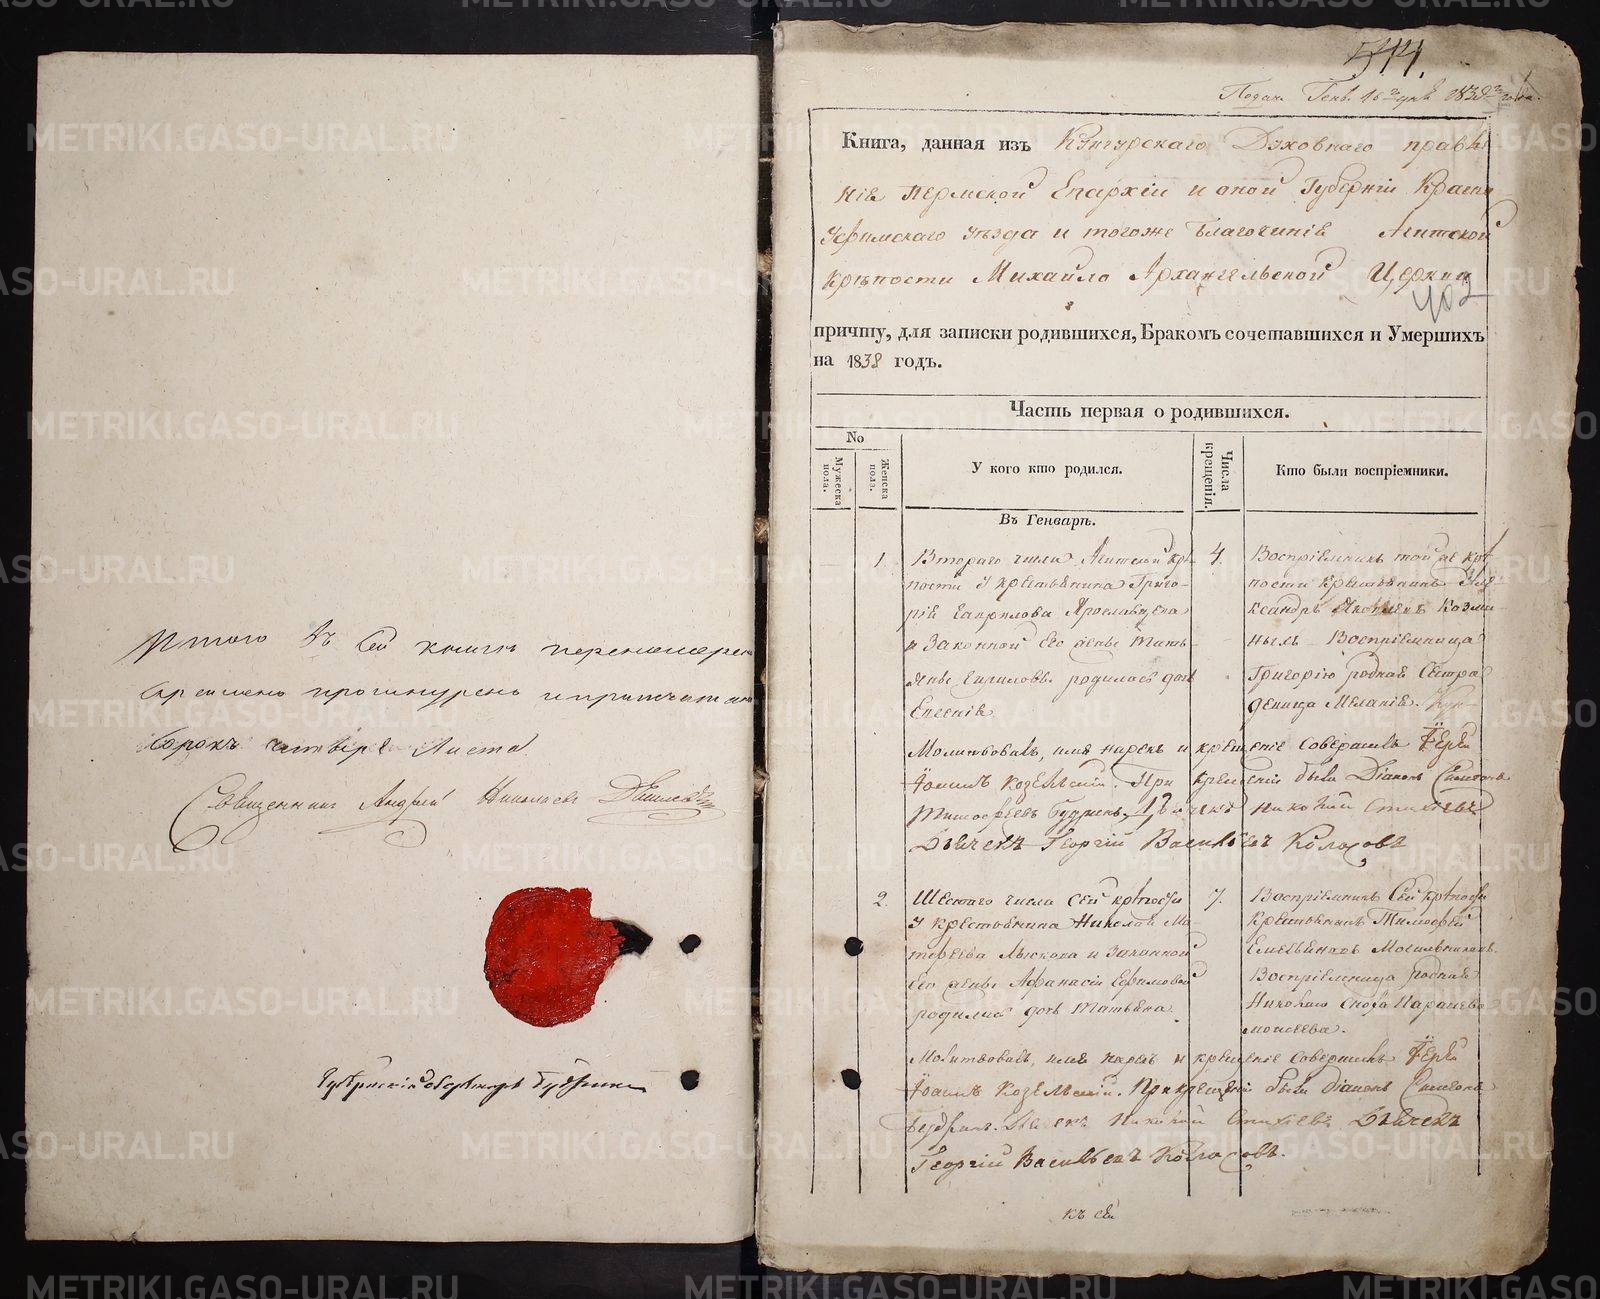 Итого въ сей книгѣ перенумеро
скрѣплено прошнурено и припечатано
сорокъ четыре листа
Священникъ Андрей Николаевъ
544.
Подан. Генв. 16 дня 1839 года.
Книга, данная изъ Кунгурскаго Духовнаго правле
нія Пермской Епархіи и оной Губерніи Красно
уфимскаго уѣзда и тогоже благочинія Ачитской
крѣпости Михайло Архангельской Церкви
402
причту, для записки родившихся, Бракомъ сочетавшихся и Умершихъ
на 1838 годъ.
Часть первая о родившихся.
No
Мужеска пола.
Женска пола.
У кого кто родился.
Числа крещенія.
Кто были воспріемники.
Въ Генварѣ.
1.
Втораго числа Ачитской крѣ
пости у крестьянина Григо-
рія Гаврилова Ярославцева
и законной его жены Тать-
яны Кириловы родилась дочь
Евгенія
4.
Воспріемникъ той же крѣ
пости крестьянинъ Але
ксандръ Яковлевъ Козми-
ныхъ Воспріемница
Григорію родная сестра
девица Меланія.
Молитвовалъ, имя нарекъ и крещеніе совершилъ Іерей
Іоаннъ Козельскій. При крещеніи были Діаконъ Симеонъ
Тимофеевъ Будринъ, Дьячекъ Николай Стихіевъ
Дьячекъ Георгій Васильевъ Колосовъ
2.
Шестаго числа сей крѣпости
у крестьянина Николая Ма
тфеева Лыскова и законной
его жены Афанасіи Ефимовой
родилась дочь Татьяна.
7.
Воспріемникъ сей крѣпости
крестьянинъ Тимофей
Емельяновъ Могильниковъ
Воспріемница родная
Николаю сноха
моисеева.
Молитвовалъ, имя нарекъ и крещеніе совершилъ Іерей
Іоаннъ Козельскій. При крещеніи были Діаконъ Симеонъ
Будринъ. Дьячекъ Николай Стихіевъ Дьячекъ
Георгій Васильевъ Колосовъ.
къ сей
METRIKI.GASO-URAL.RU